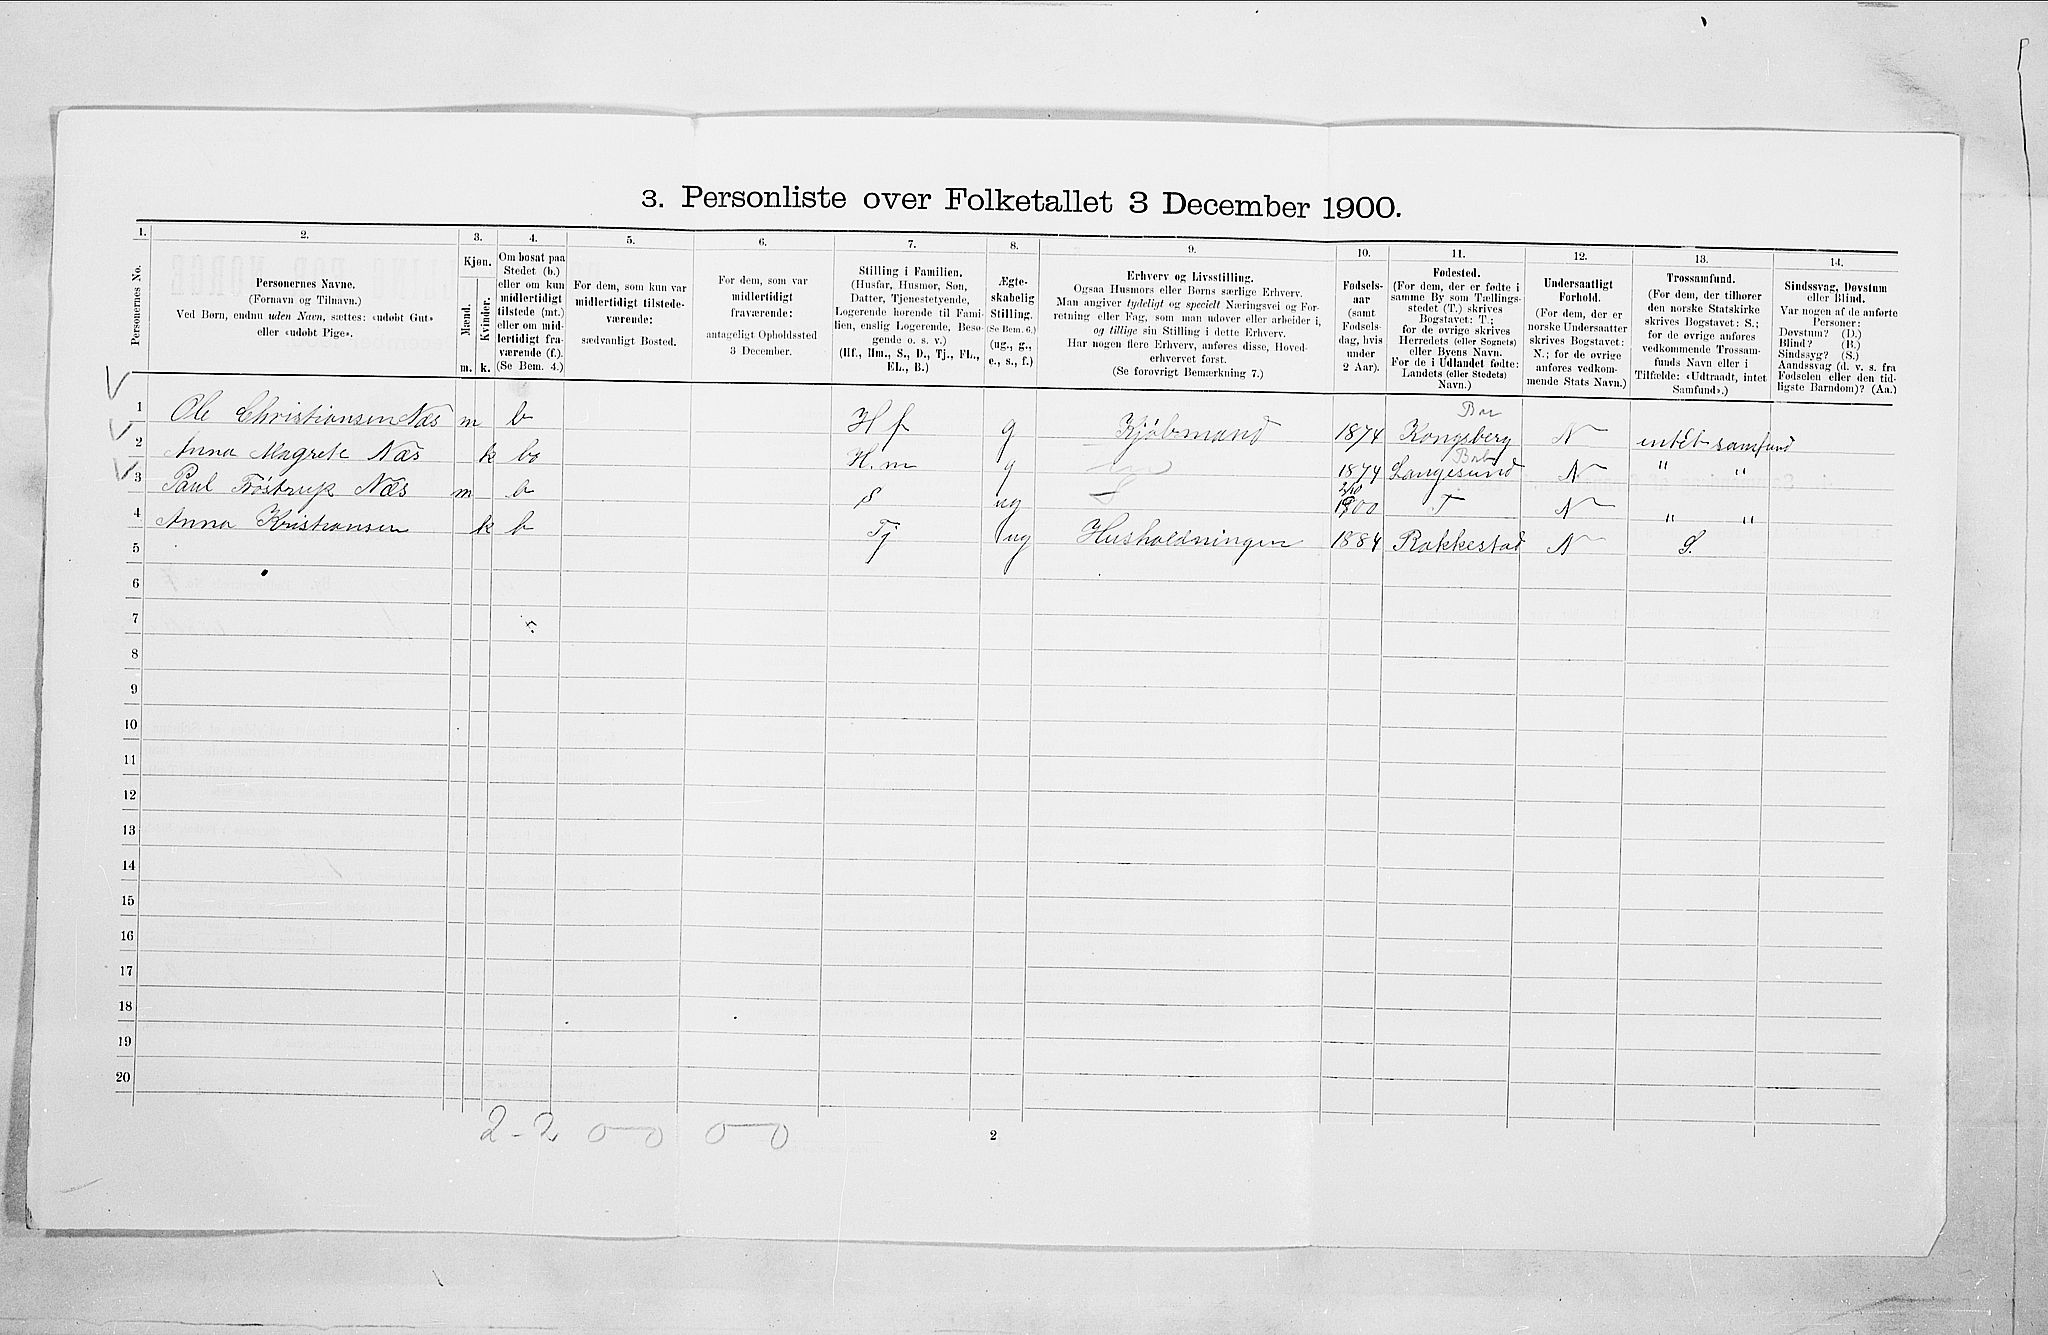 3. Personliste over Folketallet 3 December 1900.
1. 2. 3. 4. 5. 6. 7. 8. 9. 10. 11. 12. 13. 14.
Personernes No.
Personernes Navne.
(Fornavn og Tilnavn.)
Ved Børn, endnu uden Navn, sættes: «udøbt Gut»
eller «udøbt Pige».
Kjøn.
Mænd.
Kvinder.
m. k.
Om bosat paa
Stedet (b.)
eller om kun
midlertidigt
tilstede (mt.)
eller om mid-
lertidigt fra-
værende (f.).
(Se Bem. 4.)
For dem, som kun var
midlertidigt tilstede-
værende:
sædvanligt Bosted.
For dem, som var
midlertidigt
fraværende:
antageligt Opholdssted
3 December.
Stilling i Familien.
(Husfar, Husmor, Søn,
Datter, Tjenestetyende,
Logerende hørende til Fami-
lien, enslig Logerende, Besø-
gende o. s. v.)
(Hf., Hm., S., D., Tj., FL.,
EL., B.)
Ægte-
skabelig
Stilling.
(Se Bem. 6.)
(ug., g.,
e., s., f.)
Erhverv og Livsstilling.
Ogsaa Husmors eller Børns særlige Erhverv.
Man angiver tydeligt og specielt Næringsvei og For-
retning eller Fag, som man udøver eller arbeider i,
og tillige sin Stilling i dette Erhverv.
Har nogen flere Erhverv, anføres disse, Hoved-
erhvervet først.
(Se forøvrigt Bemærkning 7.)
Fødsels-
aar
(samt
Fødsels-
dag, hvis
under
2 Aar).
Fødested.
(For dem, der er fødte i
samme By som Tællings-
stedet (T.) skrives
Bogstavet: T.;
for de øvrige skrives
Herredets (eller Sognets)
eller Byens Navn.
For de i Udlandet fødte:
Landets (eller Stedets)
Navn.)
Undersaatligt
Forhold.
(For dem, der er
norske Undersaatter
skrives Bogstavet:
N.; for de øvrige
anføres vedkom-
mende Stats Navn.)
Trossamfund.
(For dem, der tilhører
den norske Statskirke
skrives Bogstavet: S.;
for de øvrige anføres
vedkommende Trossam-
funds Navn eller i
Tilfælde: «Udtraadt, intet
Samfund».)
Sindssvag, Døvstum
eller Blind.
Var nogen af de anførte
Personer:
Døvstum? (D.)
Blind? (B.)
Sindssyg? (S.)
Aandssvag (d. v. s. fra
Fødselen eller den tid-
ligste Barndom)? (Aa.)
1 Ole Christiansen Næs m b Hf g Kjöbmand 1874 Kongsberg N intet samfund
2 Anna Magrete Næs k b H.m g 1874 Langesund N " "
3 Paul Tröstrup Næs m b S ug 1900 T N " "
4 Anna Kristiansen k b Tj ug Husholdningen 1884 Rakkestad N S.
5
6
7
8
9
10
11
12
13
14
15
16
17
18
19
20
2-2 0-0 0-0
2